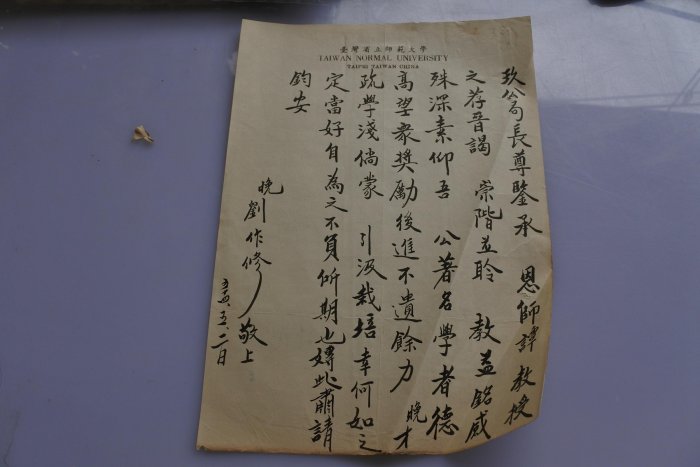 臺灣省立師範大學
TAIWAN NORMAL UNIVERSITY
TAIPEI TAIWAN CHINA
玖公局長尊鑒承 恩師譚教授
之荐晉謁 崇階并聆 教益銘感
殊深素仰吾 公著名學者德
高望衆獎勵後進不遺餘力 晚才
疏學淺倘蒙 引汲栽培幸何如之
定當好自為之不負所期也專此肅請
鈞安
晚劉作修敬上
五四、五、二日